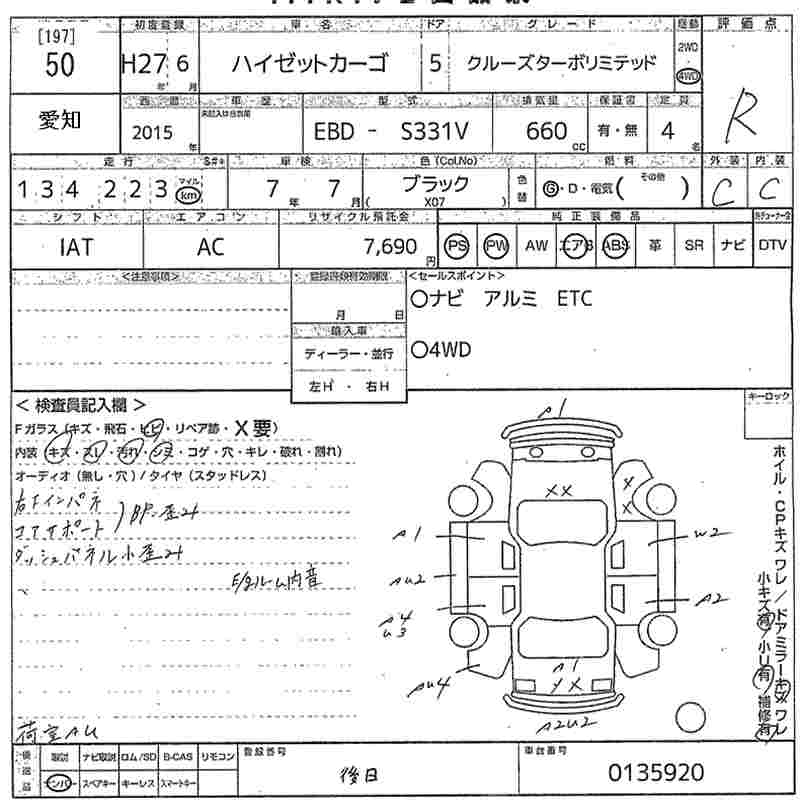 [197]
50
初度登録
車名
ドア
グレード
駆動
評価点
H27 6
年 月
ハイゼットカーゴ
5
クルーズターボリミテッド
2WD
4WD
R
愛知
車歴
型式
排気量
保証書
定員
2015
年
未記入は自家用
EBD - S331V
660
cc
有・無
4
名
走行
S#*
車検
色(Col,No)
燃料
外装
内装
134 223
マイル
km
7 7
年 月
ブラック
( X07 )
色替
G・D・電気( その他 )
C
C
シフト
エアコン
リサイクル預託金
純正装備品
IAT
AC
7,690
円
PS
PW
AW
エアB
ABS
革
SR
ナビ
DTV
<注意事項>
登録書類有効期限
<セールスポイント>
月 日
〇ナビ アルミ ETC
輸入車
ディーラー・並行
〇4WD
左H ・ 右H
< 検査員記入欄 >
キーロック
Fガラス (キズ・飛石・ヒビ・リペア跡・X要)
内装 (キズ・スレ・汚れ・シミ・コゲ・穴・キレ・破れ・割れ)
オーディオ (無し・穴) / タイヤ (スタッドレス)
右Fインパネ
コアサポート
BP・歪ﾇｹ
ダッシュパネル小歪ﾇｹ
E/gルーム内音
荷室AU
A1
XX
X
X
A1
W2
AU2
A2
A4
U3
A1
XX
AU4
A2U2
ホイル・CPキズ ワレ / ドアミラーキズ ワレ
小キズ有 / 小U有 / 補修有
備送品
取説
ナビ取説
ロム/SD
B-CAS
リモコン
ナンバー
スペアキー
キーレス
スマートキー
登録番号
後日
車台番号
0135920